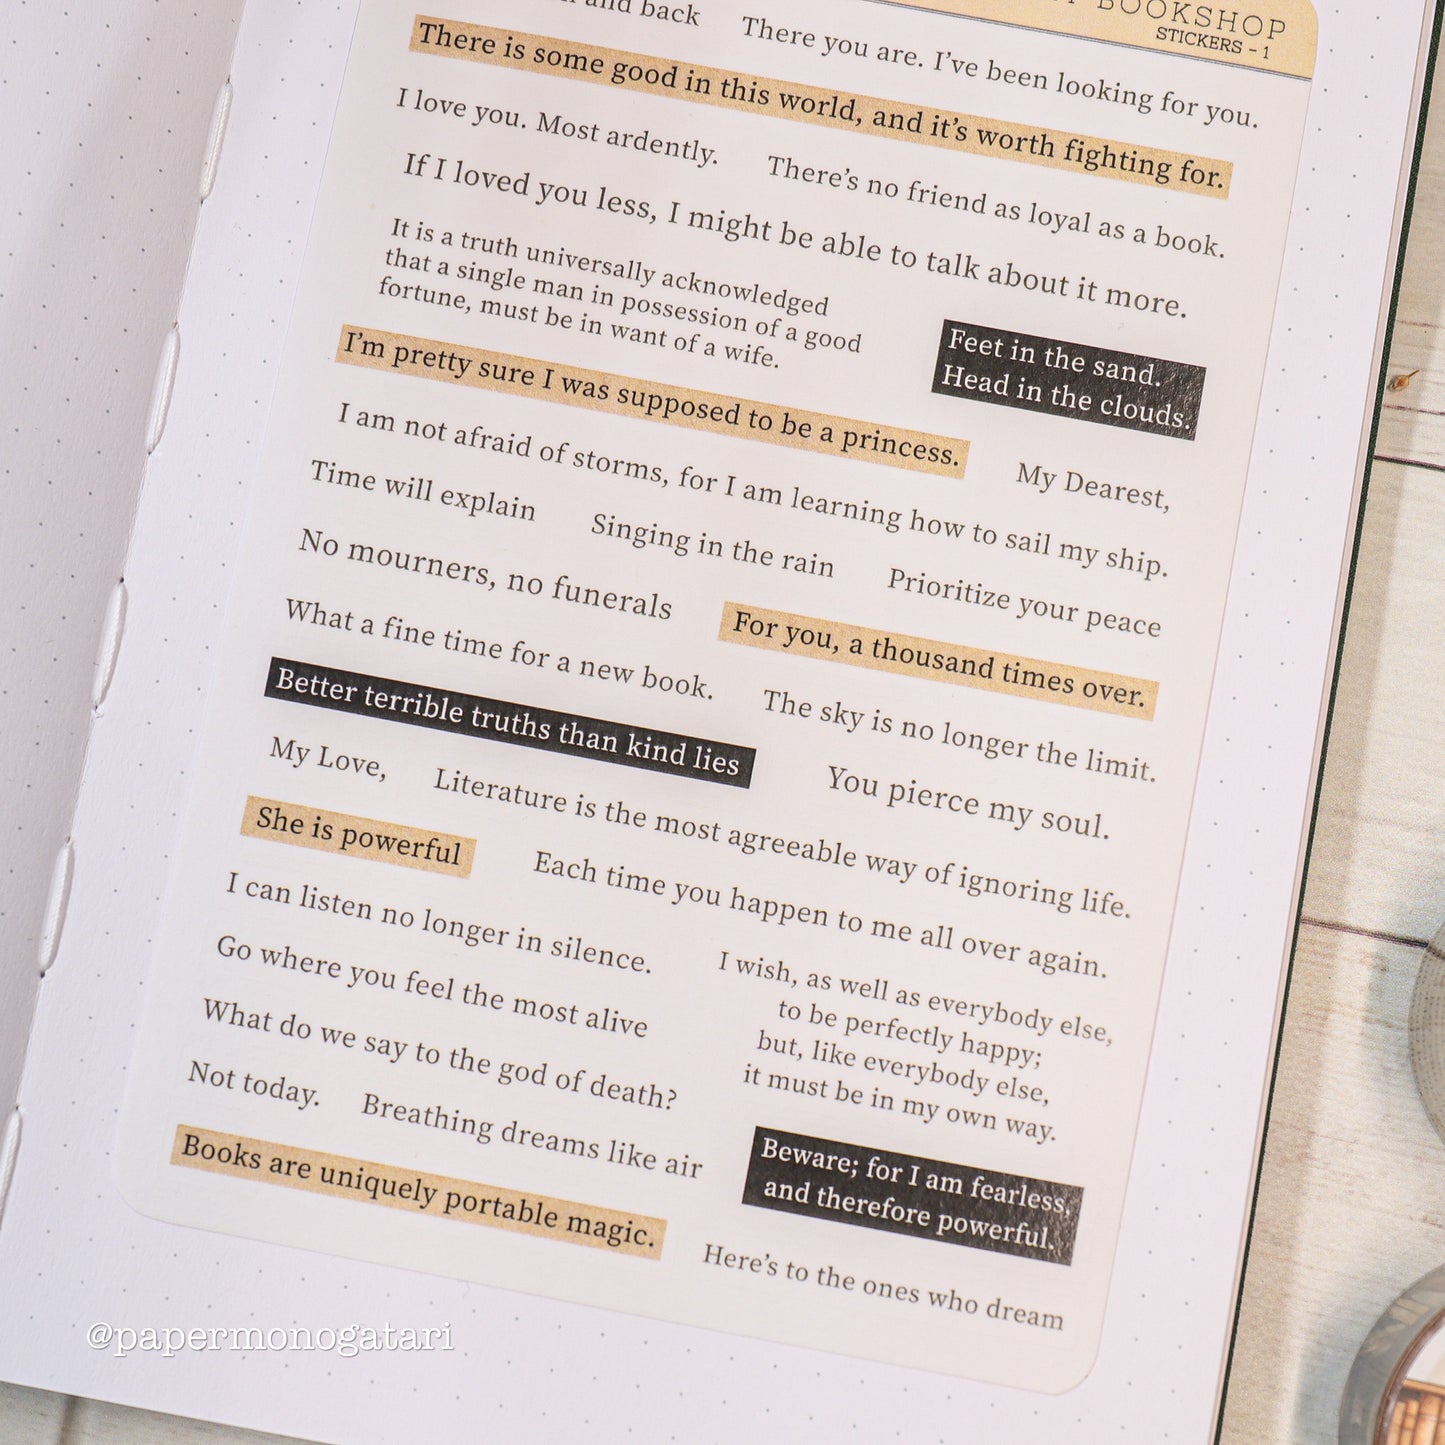 BOOKSHOP
STICKERS - 1
and back
There you are. I've been looking for you.
There is some good in this world, and it's worth fighting for.
I love you. Most ardently.
There's no friend as loyal as a book.
If I loved you less, I might be able to talk about it more.
It is a truth universally acknowledged
that a single man in possession of a good
fortune, must be in want of a wife.
Feet in the sand.
Head in the clouds.
I'm pretty sure I was supposed to be a princess.
My Dearest,
I am not afraid of storms, for I am learning how to sail my ship.
Time will explain
Singing in the rain
Prioritize your peace
No mourners, no funerals
For you, a thousand times over.
What a fine time for a new book.
The sky is no longer the limit.
Better terrible truths than kind lies
You pierce my soul.
My Love,
Literature is the most agreeable way of ignoring life.
She is powerful
Each time you happen to me all over again.
I can listen no longer in silence.
Go where you feel the most alive
I wish, as well as everybody else,
to be perfectly happy;
but, like everybody else,
it must be in my own way.
What do we say to the god of death?
Not today.
Breathing dreams like air
Beware; for I am fearless,
and therefore powerful.
Books are uniquely portable magic.
Here's to the ones who dream
@papermonogatari